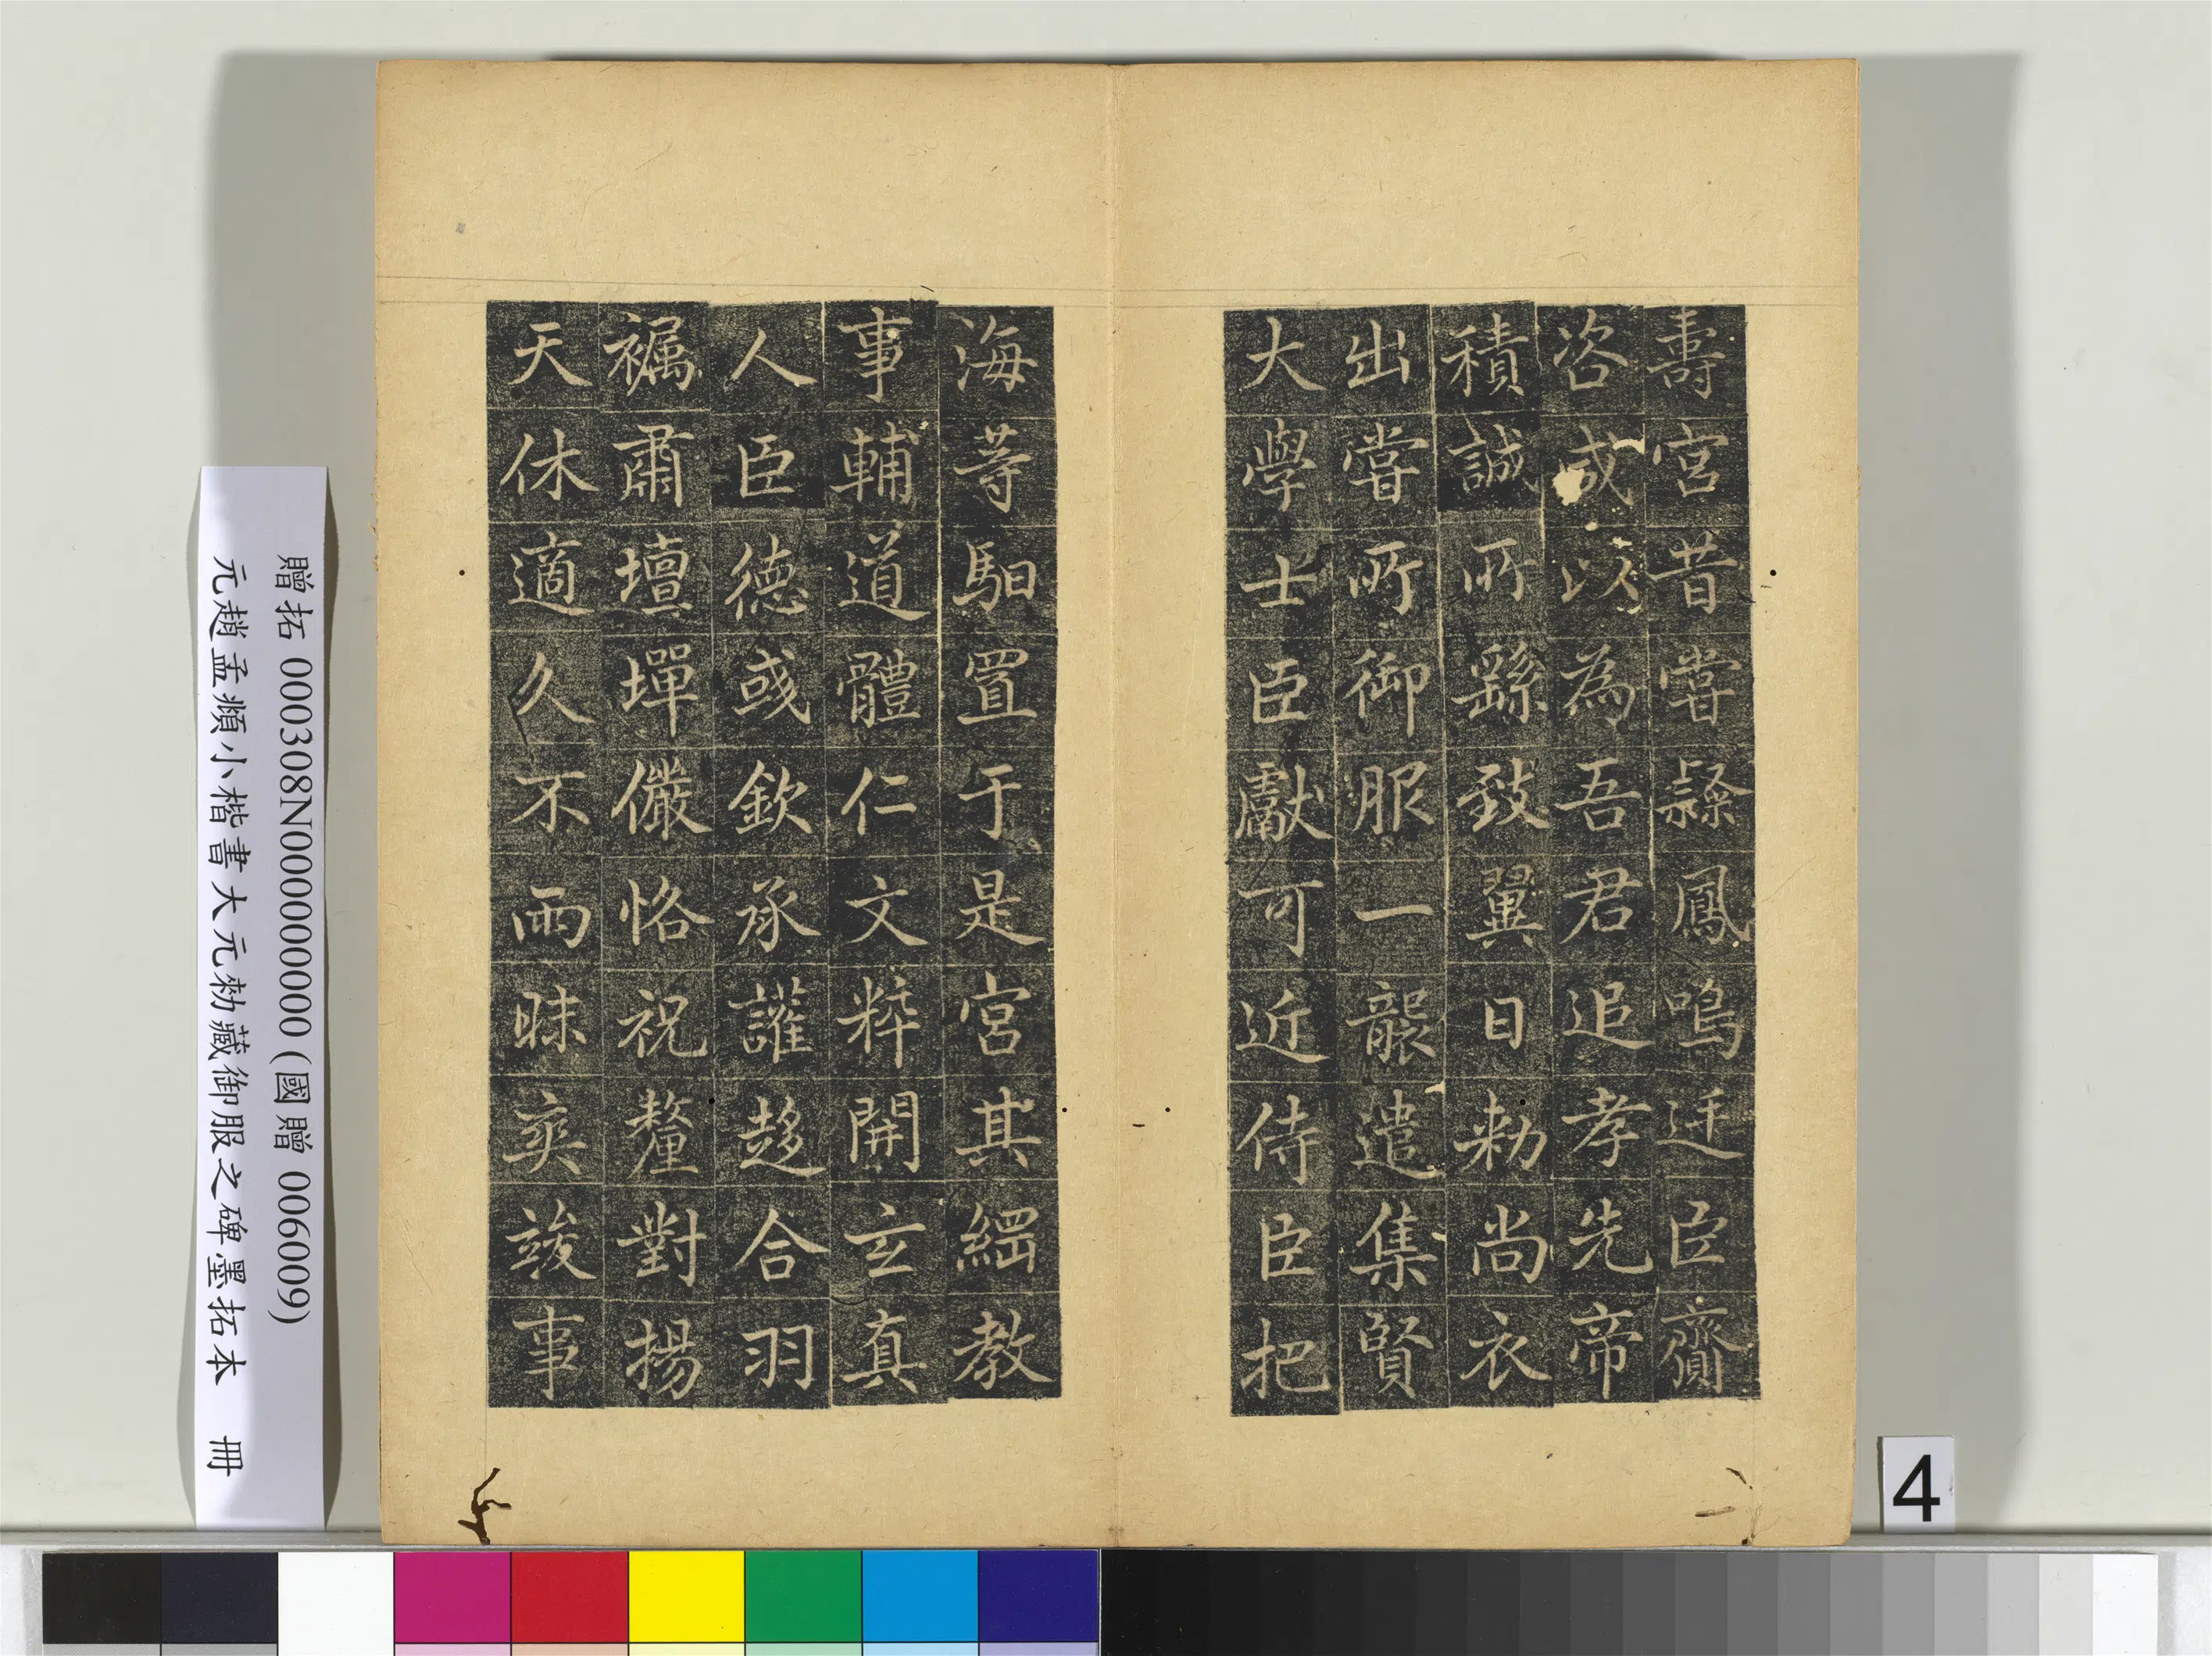 壽宮昔嘗鷂鳳鳴迋臣齎
咨咸以為吾君追孝先帝
積誠所繇致翼日勑尚衣
出嘗所御服一襲遣集賢
大學士臣獻可近侍臣把
海等馹置于是宮其綱教
事輔道體仁文粹開玄真
人臣德彧欽承讙趍合羽
褵肅壇墠儼恪祝釐對揚
天休適久不雨昧爽竣事
贈拓 000308N000000000 (國贈 006009)
元趙孟頫小楷書大元勑藏御服之碑墨拓本 冊
4